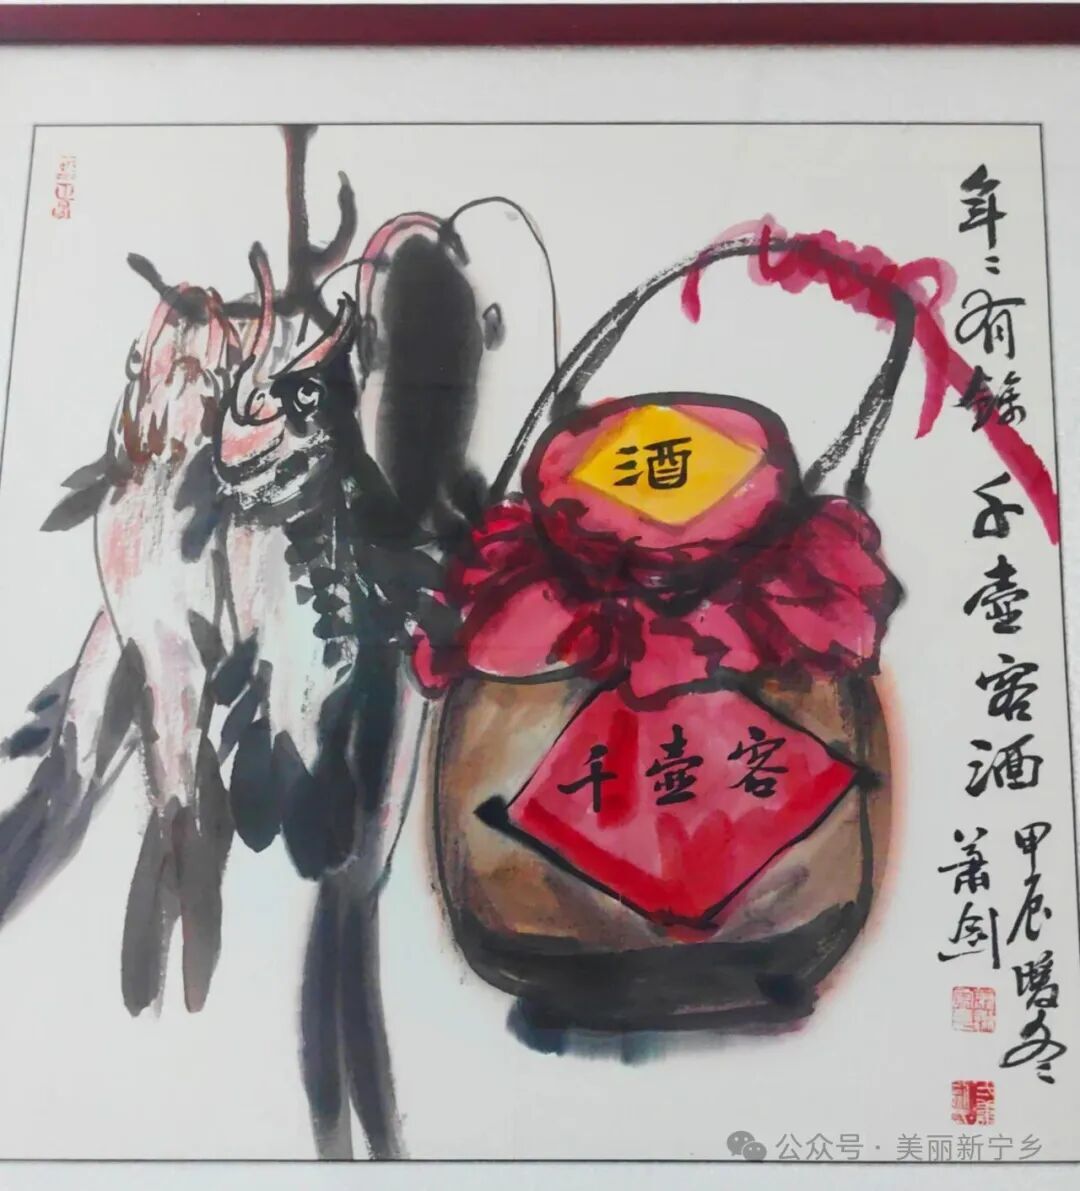 年〻有餘千壶客酒
甲辰暖冬
萧剑
酒
千壶客
公众号·美丽新宁乡